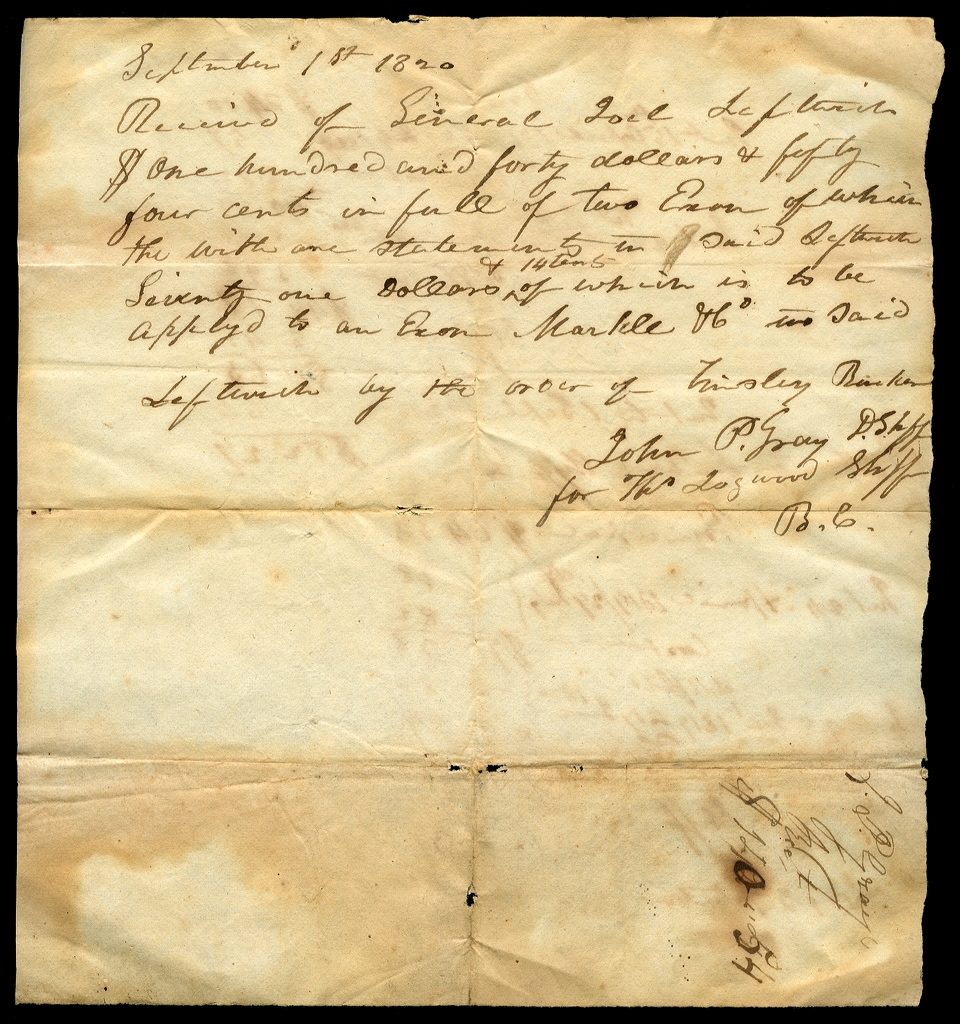 September 1st 1820
Received of General Joel Leftwich
$ one hundred and forty dollars & fifty
four cents in full of two Exon of which
the with are statements in said Leftwich
& 14 cents
Seventy one dollars ^ of which is to be
applyd to an Exon Markle & Co vs said
Leftwich by the order of Tinsley Rucker
John P. Gray D. Shff
for Ths Logwood Shff
B. C.
J. P. Gray
Rect
$ 140.54